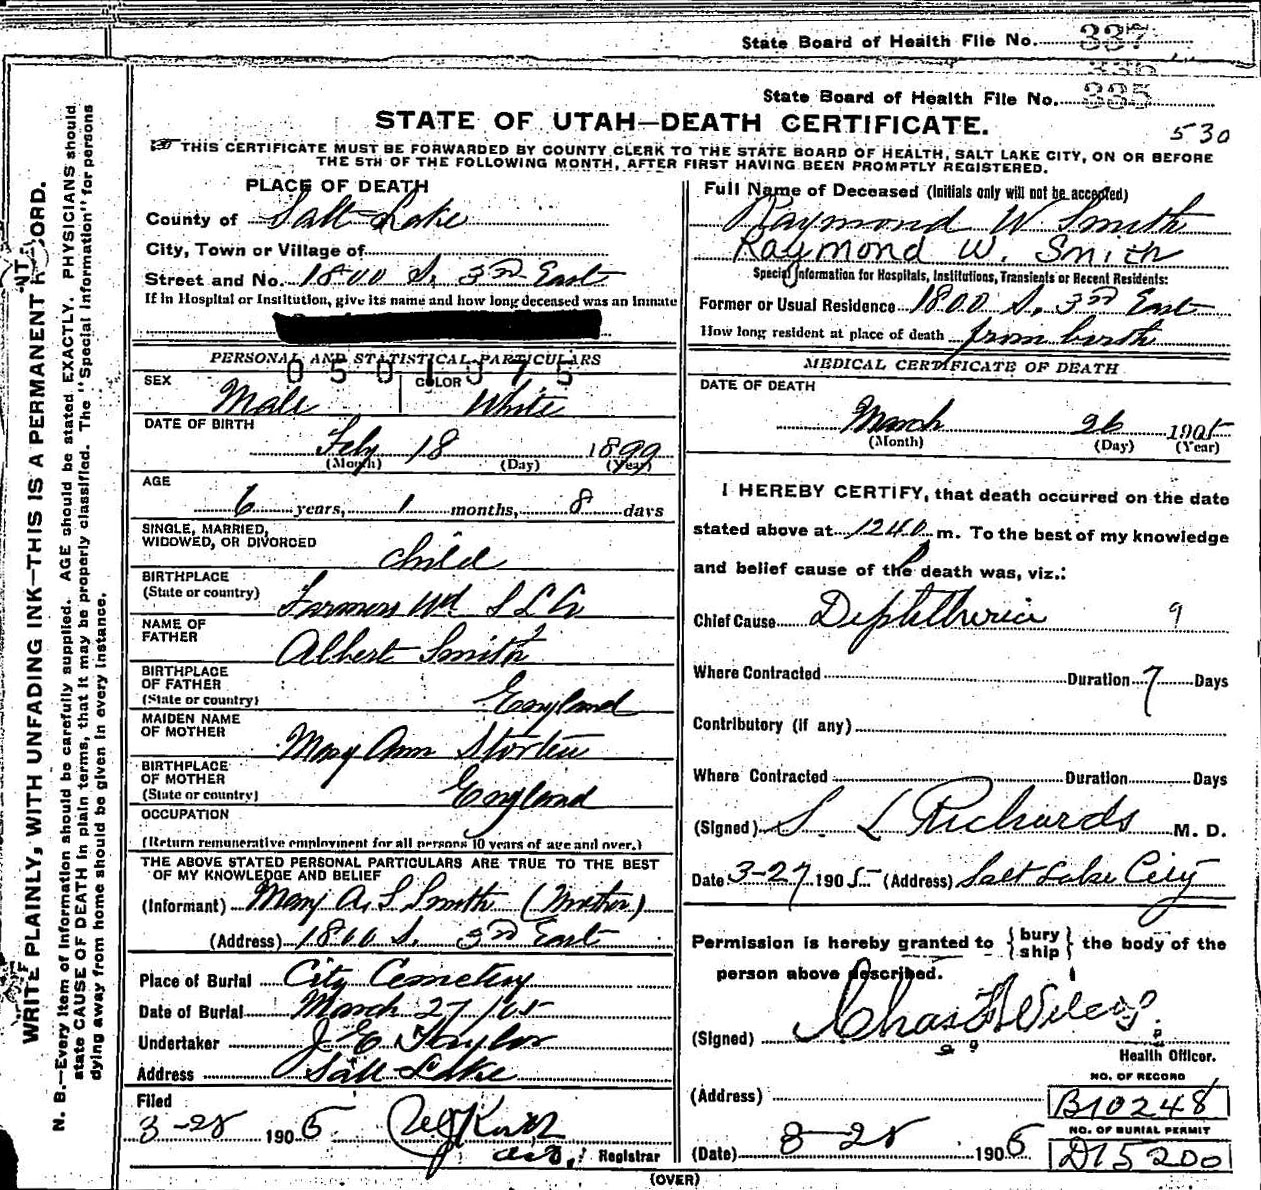 State Board of Health File No. 337
336
State Board of Health File No. 335
STATE OF UTAH—DEATH CERTIFICATE.
530
THIS CERTIFICATE MUST BE FORWARDED BY COUNTY CLERK TO THE STATE BOARD OF HEALTH, SALT LAKE CITY, ON OR BEFORE
THE 5TH OF THE FOLLOWING MONTH, AFTER FIRST HAVING BEEN PROMPTLY REGISTERED.
WRITE PLAINLY, WITH UNFADING INK—THIS IS A PERMANENT RECORD.
N. B.—Every item of information should be carefully supplied. AGE should be stated EXACTLY. PHYSICIANS should
state CAUSE OF DEATH in plain terms, that it may be properly classified. The "Special Information" for persons
dying away from home should be given in every instance.
PLACE OF DEATH
County of Salt Lake
City, Town or Village of
Street and No. 1800 S. 3rd East
If in Hospital or Institution, give its name and how long deceased was an Inmate
PERSONAL AND STATISTICAL PARTICULARS
0501075
SEX Male
COLOR White
DATE OF BIRTH
Feby 18 1899
(Month) (Day) (Year)
AGE
6 years, 1 months, 8 days
SINGLE, MARRIED,
WIDOWED, OR DIVORCED child
BIRTHPLACE
(State or country) Farmers Wd S L Co
NAME OF
FATHER Albert Smith
BIRTHPLACE
OF FATHER
(State or country) England
MAIDEN NAME
OF MOTHER Mary Ann
BIRTHPLACE
OF MOTHER
(State or country) England
OCCUPATION
(Return remunerative employment for all persons 10 years of age and over.)
THE ABOVE STATED PERSONAL PARTICULARS ARE TRUE TO THE BEST
OF MY KNOWLEDGE AND BELIEF
(Informant) Mary A. S Smith (Mother)
(Address) 1800 S. 3rd East
Place of Burial City Cemetery
Date of Burial March 27/05
Undertaker J E Taylor
Address Salt Lake
Filed
3-28 1905
Registrar
Full Name of Deceased (Initials only will not be accepted)
Raymond W Smith
Raymond W. Smith
Special Information for Hospitals, Institutions, Transients or Recent Residents:
Former or Usual Residence 1800 S. 3rd East
How long resident at place of death from birth
MEDICAL CERTIFICATE OF DEATH
DATE OF DEATH
March 26 1905
(Month) (Day) (Year)
I HEREBY CERTIFY, that death occurred on the date
stated above at 1240 P m. To the best of my knowledge
and belief cause of the death was, viz.:
Chief Cause Diphtheria 9
Where Contracted Duration 7 Days
Contributory (if any)
Where Contracted Duration Days
(Signed) S. L Richards M. D.
Date 3-27 1905 (Address) Salt Lake City
Permission is hereby granted to { bury
ship } the body of the
person above described.
(Signed) Chas F Wilcox
Health Officer.
(Address)
NO. OF RECORD
B10248
NO. OF BURIAL PERMIT
D15200
(Date) 3-28 1905
(OVER)